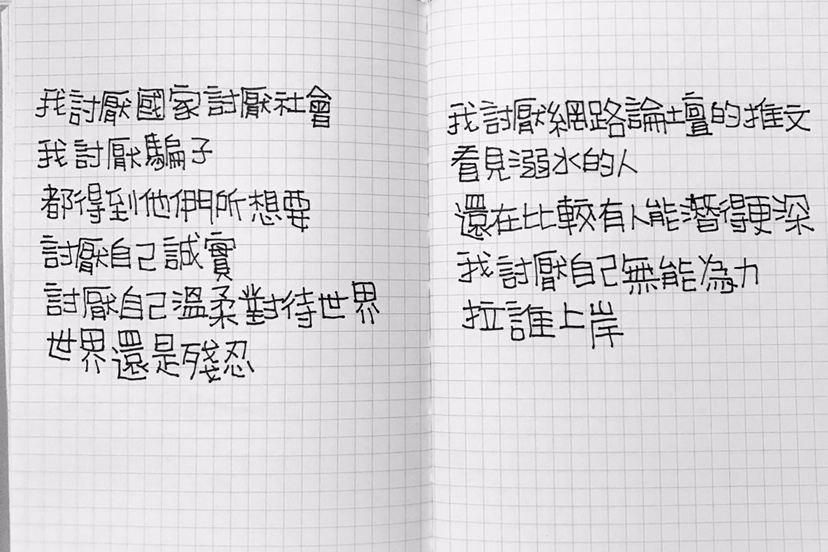 我討厭國家討厭社會
我討厭騙子
都得到他們所想要
討厭自己誠實
討厭自己溫柔對待世界
世界還是殘忍
我討厭網路論壇的推文
看見溺水的人
還在比較有人能潛得更深
我討厭自己無能為力
拉誰上岸